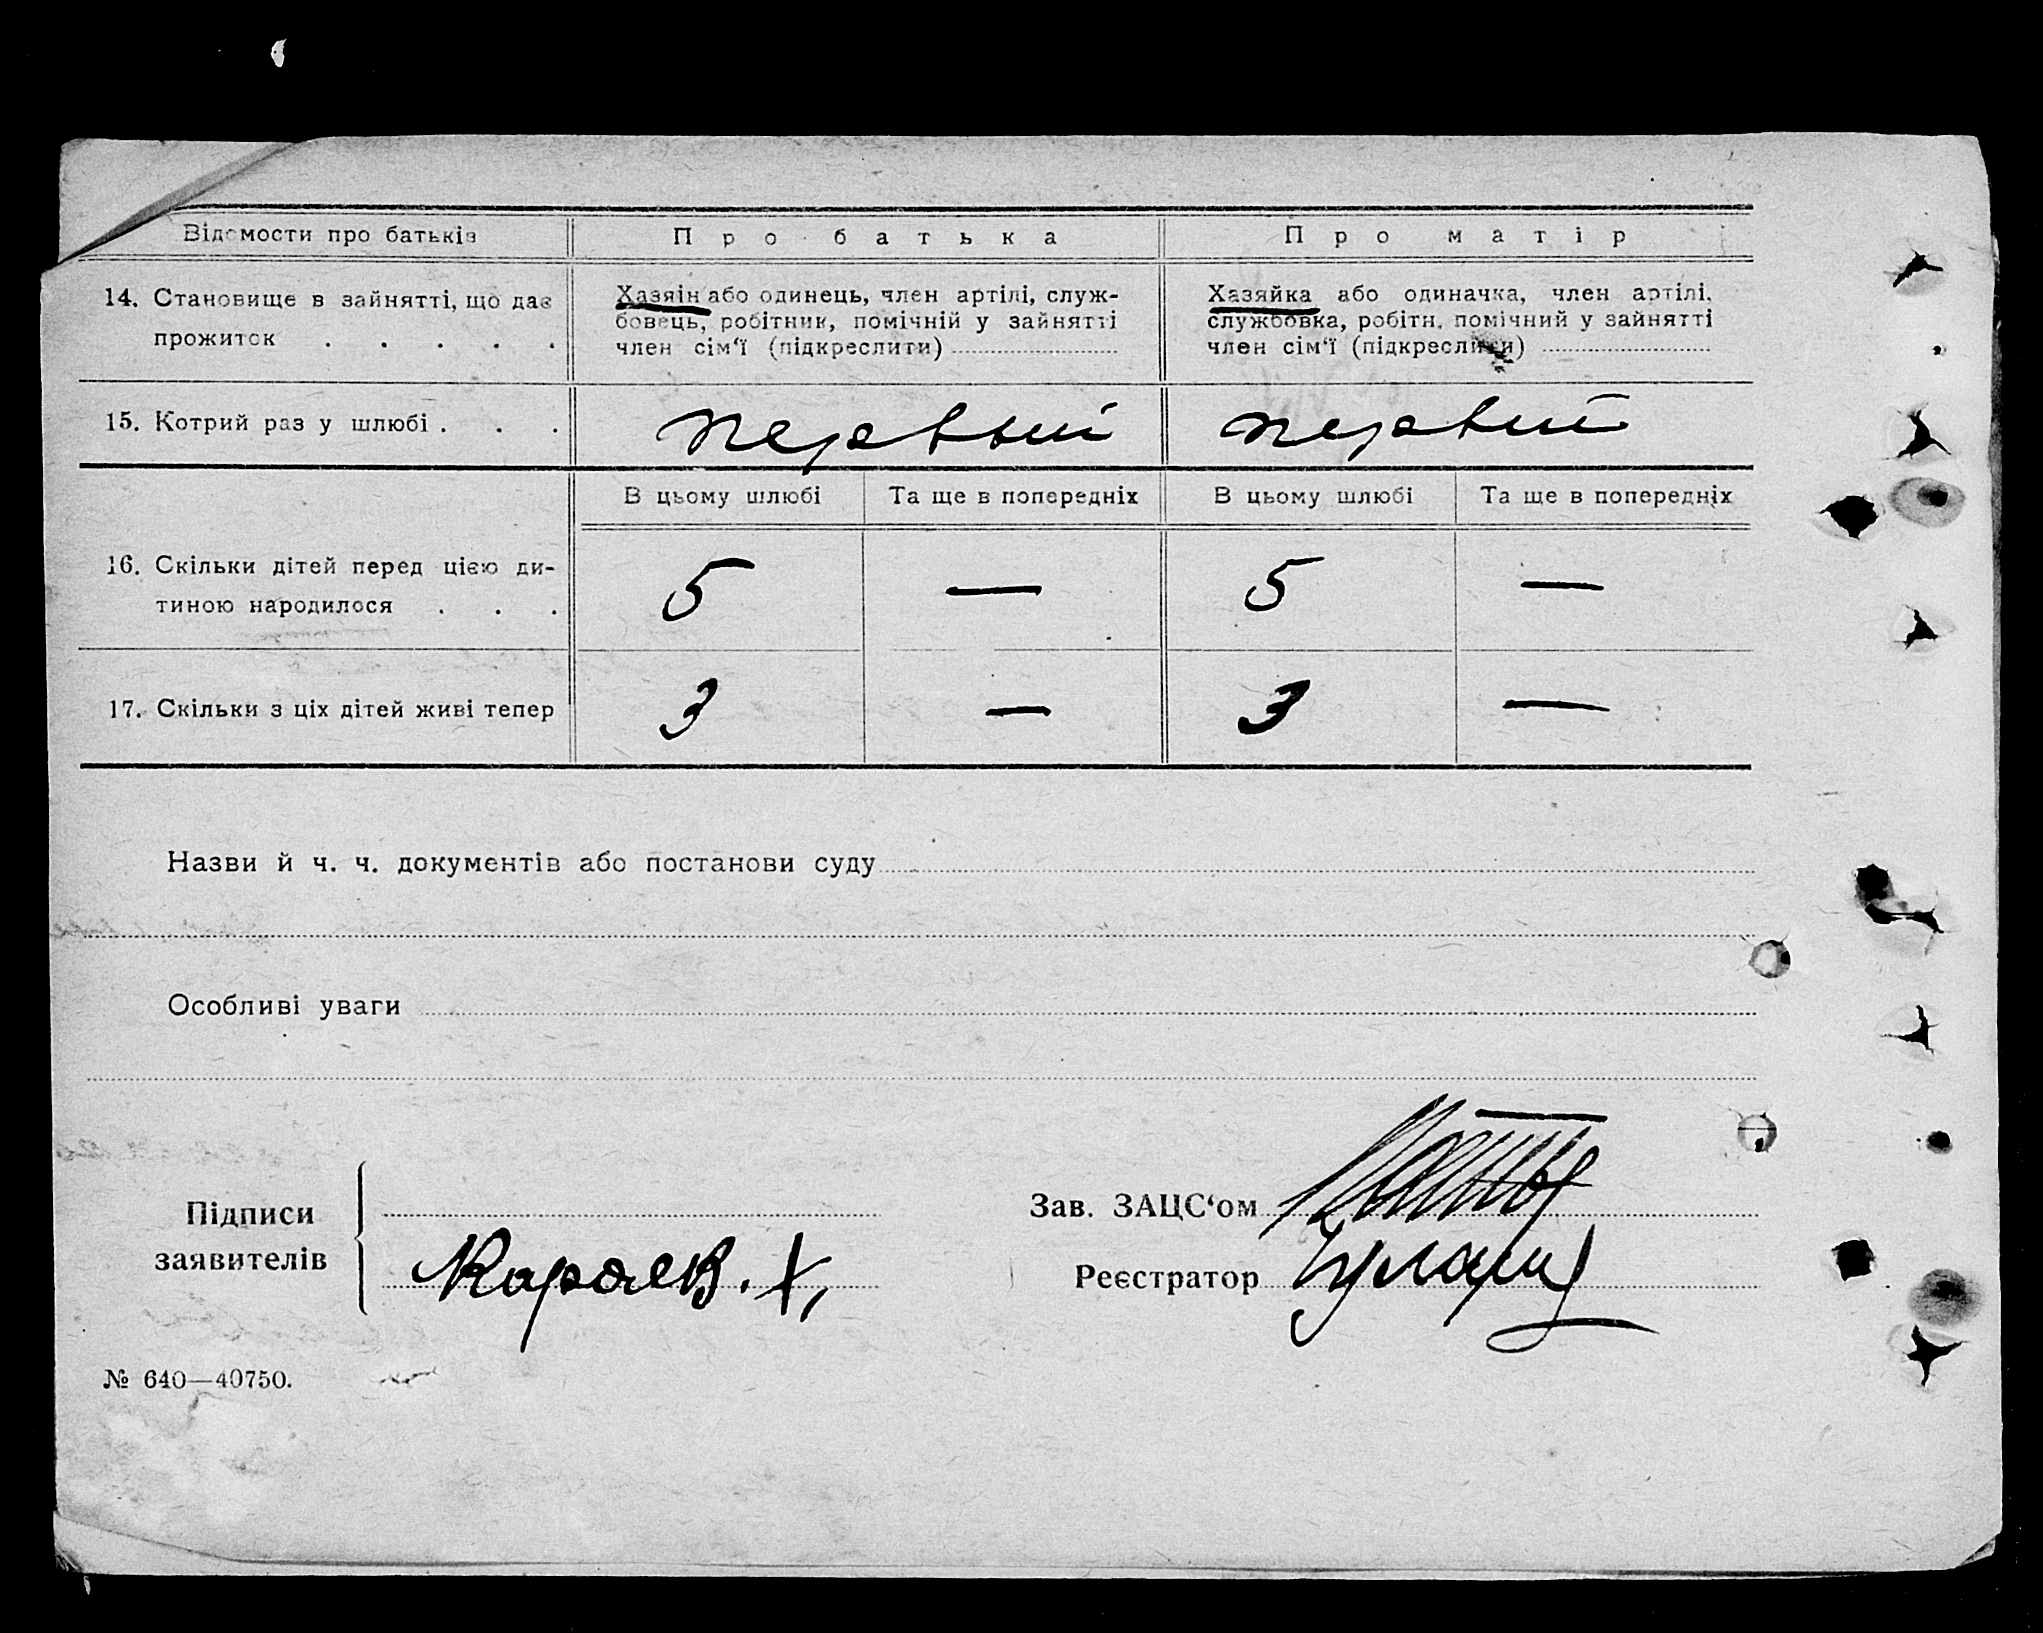 Відомости про батьків
Про батька
Про матір
14. Становище в зайнятті, що дає
прожиток . . . . .
Хазяін або одинець, член артілі, служ-
бовець, робітник, помічній у зайнятті
член сім‘ї (підкреслити)
Хазяйка або одиначка, член артілі,
службовка, робітн. помічний у зайнятті
член сім‘ї (підкреслити)
15. Котрий раз у шлюбі . . .
первый
первий
В цьому шлюбі
Та ще в попередніх
В цьому шлюбі
Та ще в попередніх
16. Скільки дітей перед цією ди-
тиною народилося . . .
5 — 5 —
17. Скільки з ціх дітей живі тепер
3 — 3 —
Назви й ч. ч. документів або постанови суду
Особливі уваги
Підписи
заявителів
Зав. ЗАЦС‘ом
Реєстратор
№ 640—40750.